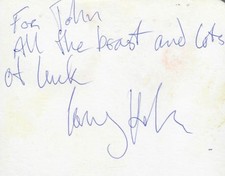 For John
All the beast and lots
of luck